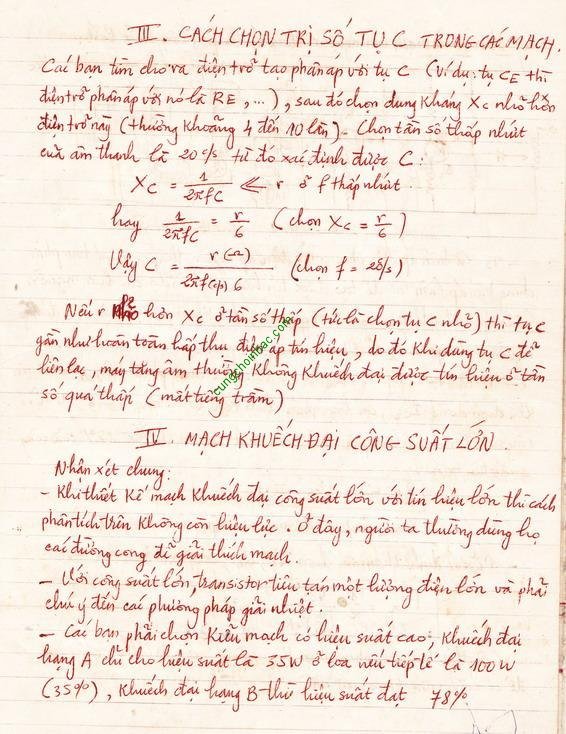 III. CÁCH CHỌN TRỊ SỐ TỤ C TRONG CÁC MẠCH.
Các bạn tìm cho ra điện trở tạo phân áp với tụ C (ví dụ: tụ CE thì
điện trở phân áp với nó là RE, ...), sau đó chọn dung kháng Xc nhỏ hơn
điện trở này (thường khoảng 4 đến 10 lần). Chọn tần số thấp nhứt
của âm thanh là 20 c/s từ đó xác định được C:
Xc = 1/2πfC ≪ r ở f thấp nhứt.
hay 1/2πfC = r/6 (chọn Xc = r/6)
Vậy C = r (Ω)/2πf(cp) 6 (chọn f = 20/s)
Nếu r nhỏ hơn Xc ở tần số thấp (tức là chọn tụ C nhỏ) thì tụ C
gần như hoàn toàn hấp thu điện áp tín hiệu, do đó khi dùng tụ C để
liên lạc, máy tăng âm thường không khuếch đại được tín hiệu ở tần
số quá thấp (mất tiếng trầm)
cungchoinhac.com
IV. MẠCH KHUẾCH ĐẠI CÔNG SUẤT LỚN.
Nhận xét chung:
- Khi thiết kế mạch khuếch đại công suất lớn với tín hiệu lớn thì cách
phân tích trên không còn hiệu lực. Ở đây, người ta thường dùng họ
các đường cong để giải thích mạch.
- Với công suất lớn, transistor tiêu tán một lượng điện lớn và phải
chú ý đến các phương pháp giải nhiệt.
- Các bạn phải chọn kiểu mạch có hiệu suất cao; khuếch đại
hạng A chỉ cho hiệu suất là 35W ở loa nếu tiếp tế là 100W
(35%), khuếch đại hạng B thì hiệu suất đạt 78%